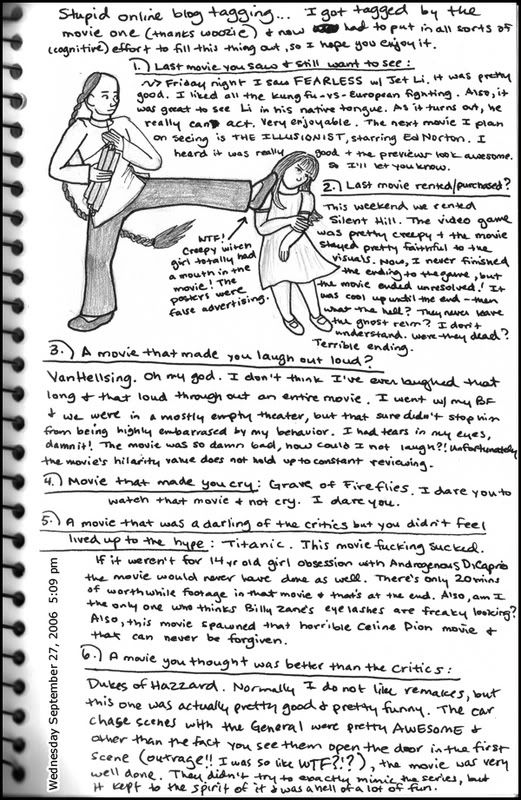 Stupid online blog tagging... I got tagged by the
movie one (thanks woozie) & now had to put in all sorts of
(cognitive) effort to fill this thing out, so I hope you enjoy it.
1.) Last movie you saw & still want to see:
~> Friday night I saw FEARLESS w/ Jet Li. It was pretty
good. I liked all the kung fu -vs- European fighting. Also, it
was great to see Li in his native tongue. As it turns out, he
really can act. Very enjoyable. The next movie I plan
on seeing is THE ILLUSIONIST, starring Ed Norton. I
heard it was really good & the previews look awesome.
So I'll let you know.
2.) Last movie rented/purchased?
This weekend we rented
Silent Hill. The video game
was pretty creepy & the movie
stayed pretty faithful to the
visuals. Now, I never finished
the ending to the game, but
the movie ended unresolved! It
was cool up until the end - then
what the hell? They never leave
the ghost relm? I don't
understand. were they dead?
Terrible ending.
WTF!
Creepy witch
girl totally had
a mouth in the
movie! The
posters were
false advertising.
3.) A movie that made you laugh out loud?
Van Hellsing. Oh my god. I don't think I've ever laughed that
long & that loud through out an entire movie. I went w/ my BF
& we were in a mostly empty theater, but that sure didn't stop him
from being highly embarrased by my behavior. I had tears in my eyes,
damnit! The movie was so damn bad, how could I not laugh?! Unfortunately
the movie's hilarity value does not hold up to constant reviewing.
4.) Movie that made you cry: Grave of Fireflies. I dare you to
watch that movie & not cry. I dare you.
5.) A movie that was a darling of the critics but you didn't feel
lived up to the hype: Titanic. This movie fucking sucked.
If it weren't for 14 yr old girl obsession with Androgenous DiCaprio
the movie would never have done as well. There's only 20 mins
of worthwhile footage in that movie & that's at the end. Also, am I
the only one who thinks Billy Zane's eyelashes are freaky looking?
Also, this movie spawned that horrible Celine Dion movie &
that can never be forgiven.
6.) A movie you thought was better than the critics:
Dukes of Hazzard. Normally I do not like remakes, but
this one was actually pretty good & pretty funny. The car
chase scenes with the General were pretty AWESOME &
other than the fact you see them open the door in the first
scene (outrage!! I was so like WTF?!?), the movie was very
well done. They didn't try to exactly mimic the series, but
it kept to the spirit of it & was a hell of a lot of fun.
Wednesday September 27, 2006 5:09 pm